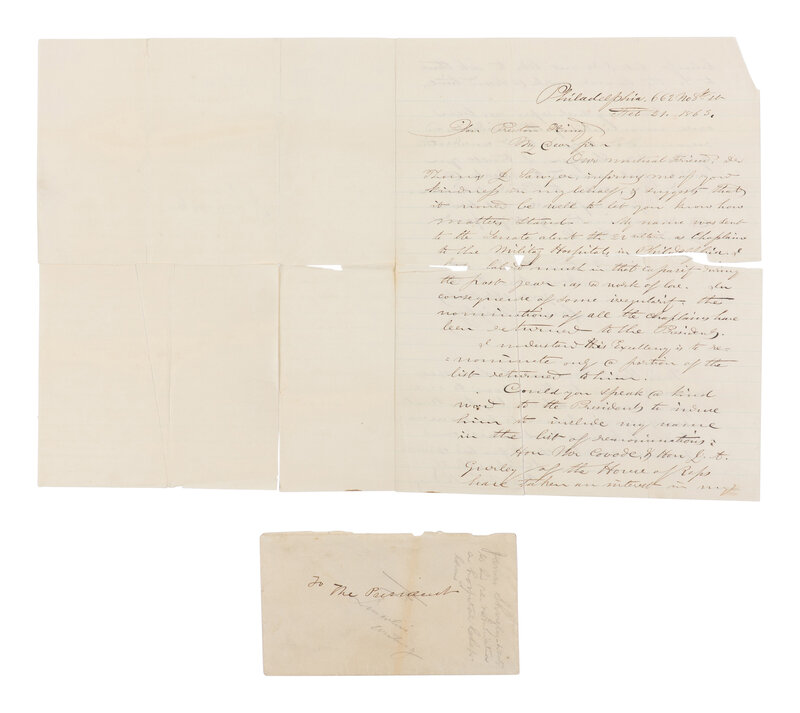 Philadelphia, 662 No 8th st
Feb 21. 1863.
Hon Preston King
My Dear Sir
Our mutual friend, Dr
Thomas J Sawyer, informs me of your
kindness in my behalf, & suggests that
it would be well to let you know how
matters stand. My name was sent
to the Senate about the as Chaplain
to the Military Hospitals in Philadelphia. I
had labored much in that capacity during
the past year as a work of love. In
consequence of some irregularity the
nominations of all the Chaplains have
been returned to the President.
I understand His Excellency is to re-
nominate only a portion of the
list returned to him.
Could you speak a kind
word to the President to induce
him to include my name
in the list of renominations?
Hon Mr Covode, & Hon J. A.
Gurley of the House of Reps
have taken an interest in my
To The President
James Shrigley
to be
a Hospital Chap-